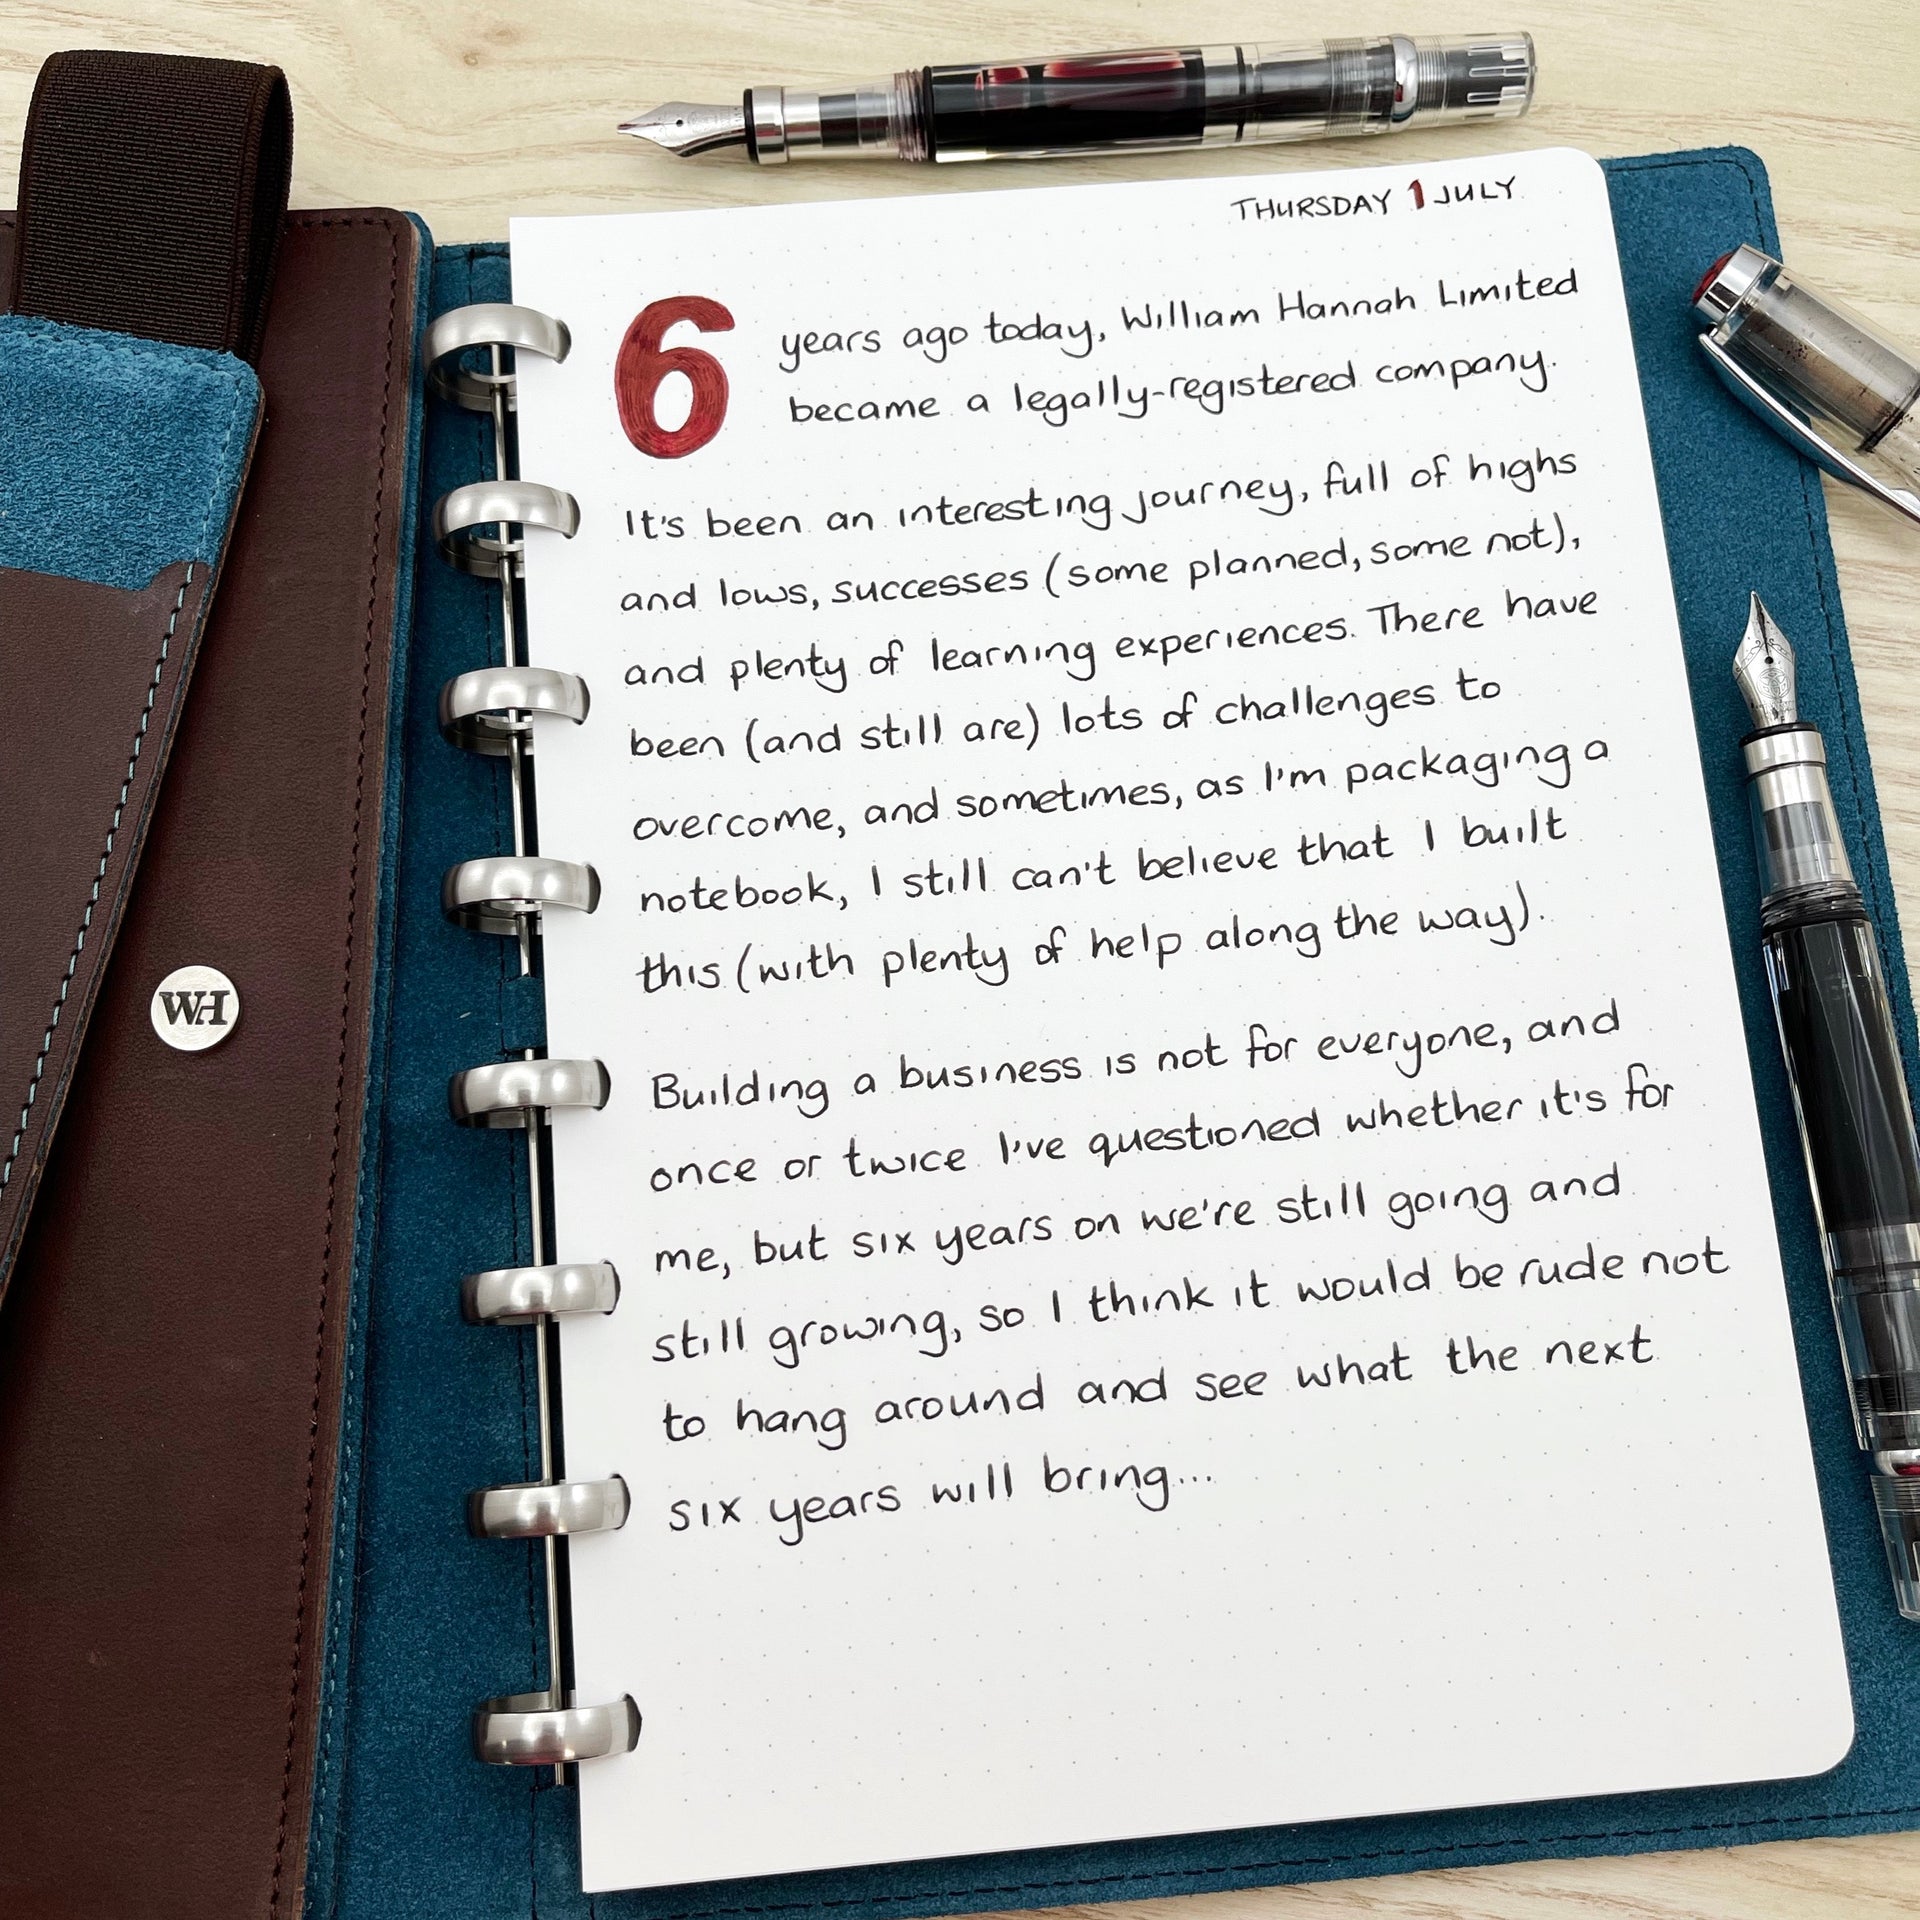 THURSDAY 1 JULY
6 years ago today, William Hannah Limited
became a legally-registered company.
It's been an interesting journey, full of highs
and lows, successes (some planned, some not),
and plenty of learning experiences. There have
been (and still are) lots of challenges to
overcome, and sometimes, as I'm packaging a
notebook, I still can't believe that I built
this (with plenty of help along the way).
Building a business is not for everyone, and
once or twice I've questioned whether it's for
me, but six years on we're still going and
still growing, so I think it would be rude not
to hang around and see what the next
six years will bring...
WH